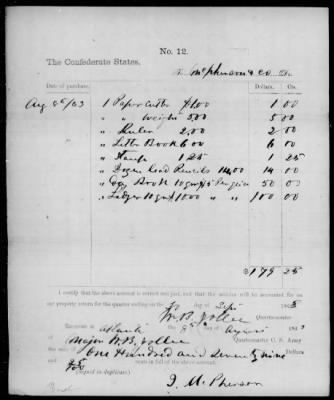 No. 12.
The Confederate States,
To McPherson & Co Dr.
Date of purchase. Dollars. Cts.
Aug 8th/63 1 Paper Cutter $1.00 1 00
" " Weight 5.00 5 00
" " Ruler 2.00 2 00
" " Letter Book 6.00 6 00
" " Stamp 1 25 1 25
" " Dozen Lead Pencils 14.00 14 00
" " Book 10 qrs 50 00
" " Ledger 10 qrs 1000 " " 100 00
$179 25
I certify that the above account is correct and just, and that the articles will be accounted for on
my property return for the quarter ending on the 30 day of Sept 1863
Quartermaster
Received at Atlanta 8th day of August 186
Major Quartermaster C. S. Army
One Hundred and seventy nine Dollars
cents in full of the above account.
(Signed in duplicate.)
J. McPherson